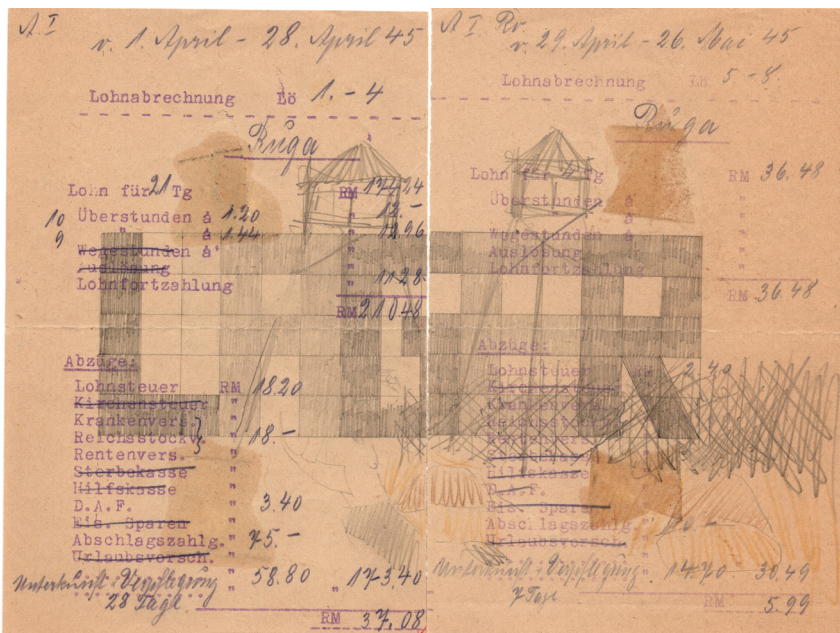 A I
v. 1. April - 28. April 45
Lohnabrechnung Lö 1. - 4
Rüga
Lohn für 21 Tg RM 174.24
10 Überstunden á 1.20 " 12.-
9 " á 1.44 " 12.96
Wegestunden á "
Auslösung "
Lohnfortzahlung " 11.28
RM 210.48
Abzüge:
Lohnsteuer RM 18.20
Kirchensteuer "
Krankenvers. "
Reichsstockv. } " 18.-
Rentenvers. "
Sterbekasse "
Hilfskasse "
D.A.F. " 3.40
Eis. Sparen "
Abschlagszahlg. " 75.-
Urlaubsvorsch. "
Unterkunft & Verpflegung " 58.80 " 173.40
28 Tage
RM 37.08
A I Ro.
v. 29. April - 26. Mai 45
Lohnabrechnung Lö 5 - 8.
Rüga
Lohn für 4 Tg RM 36.48
Überstunden á "
" á "
Wegestunden á "
Auslösung "
Lohnfortzahlung "
RM 36.48
Abzüge:
Lohnsteuer RM 2.40
Kirchensteuer
Krankenvers.
Reichsstockv.
Rentenvers.
Sterbekasse
Hilfskasse
D.A.F.
Eis. Sparen
Abschlagszahlg. "
Urlaubsvorsch. "
Unterkunft & Verpflegung " 14.70 30.49
7 Tage
RM 5.99